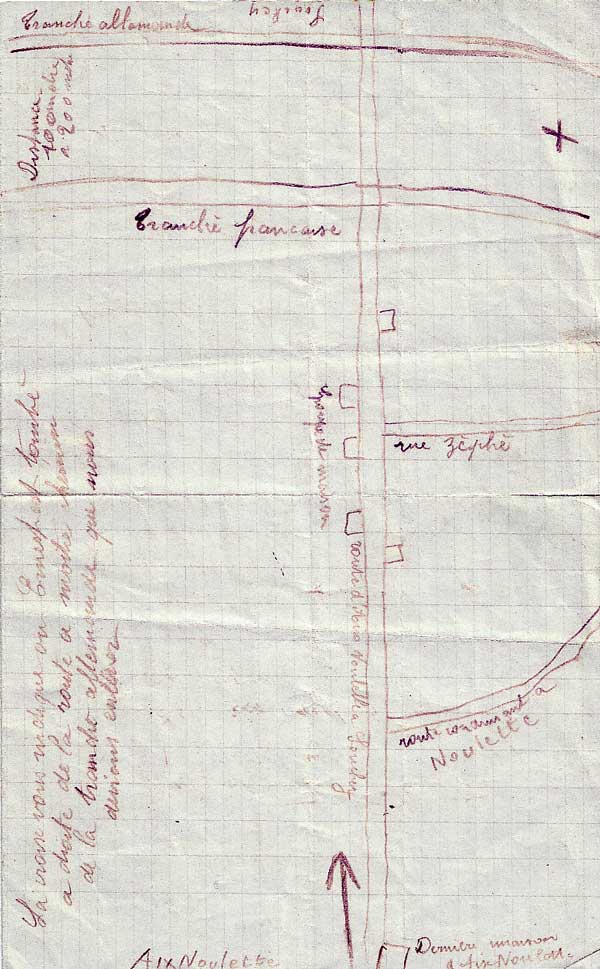 Tranché allemande
Souchey
Distance
100 metre
a 200 metre
Tranché francaise
Groupe de maison
rue zéphé
route d'Aix Noulette a Souchez
route conduisant a
Noulette
La croix vous indique ou Ernest est tombé
a droite de la route a moitié chemin
de la tranché allemande que nous
devions enlever
Aix Noulette
Derniere maison
d'Aix Noulette